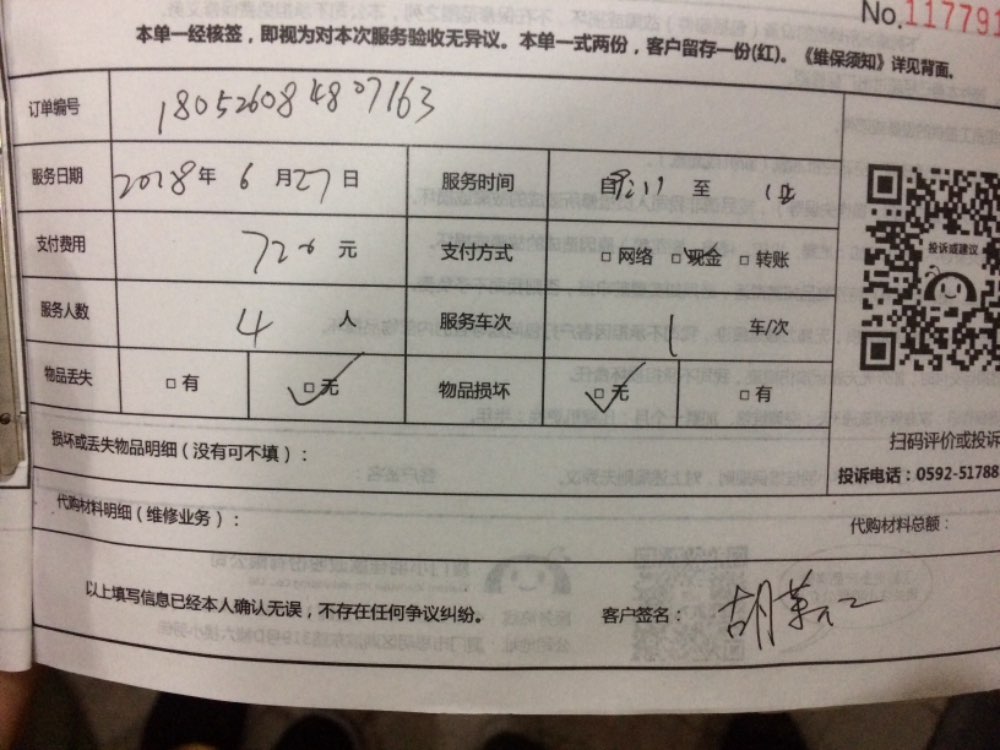 No.117791
本单一经核签，即视为对本次服务验收无异议。本单一式两份，客户留存一份(红)。《维保须知》详见背面。
订单编号 180526084807163
服务日期 2018年 6 月27日 服务时间 自 至
支付费用 720 元 支付方式 □网络 □现金 □转账
投诉或建议
服务人数 4 人 服务车次 1 车/次
物品丢失 □有 □无 物品损坏 □无 □有
损坏或丢失物品明细（没有可不填）：
扫码评价或投诉
投诉电话：0592-51788
代购材料明细（维修业务）：
代购材料总额：
以上填写信息已经本人确认无误，不存在任何争议纠纷。 客户签名：胡